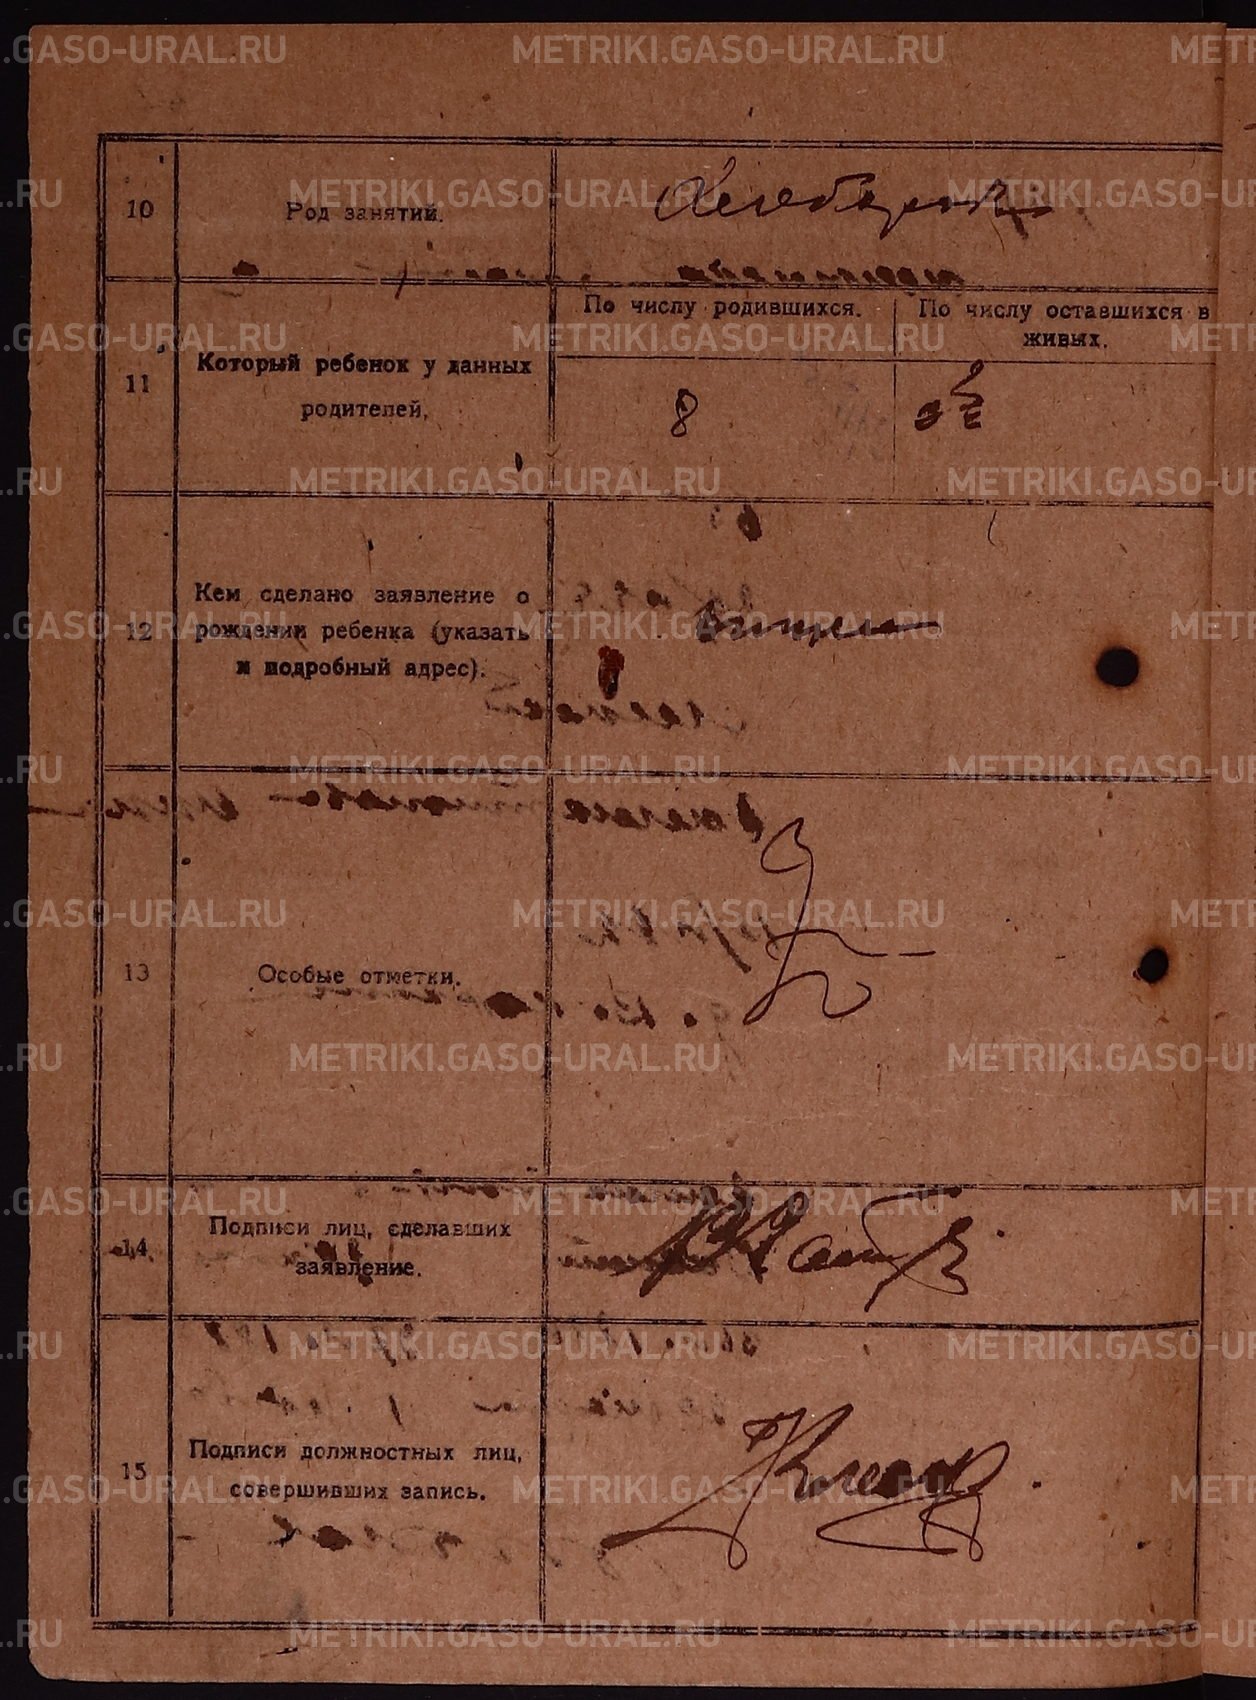 METRIKI.GASO-URAL.RU
10
Род занятий.
Хлебороб
11
Который ребенок у данных
родителей.
По числу родившихся.
По числу оставшихся в
живых.
8
12
Кем сделано заявление о
рождении ребенка (указать
и подробный адрес).
Отцем
13
Особые отметки.
14
Подписи лиц, сделавших
заявление.
15
Подписи должностных лиц,
совершивших запись.